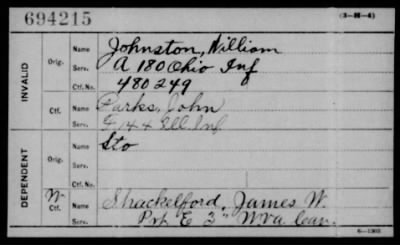 694215
(3-M-4)
INVALID
Orig.
Name
Johnston, William
Serv.
A 180 Ohio Inf
Ctf. No.
480249
Ctf.
Name
Parks, John
Serv.
F 144 Ill Inf
DEPENDENT
Orig.
Name
Sto
Serv.
Ctf. No.
W
Ctf.
Name
Shackelford, James W.
Serv.
E 3" W Va Cav.
6-1303